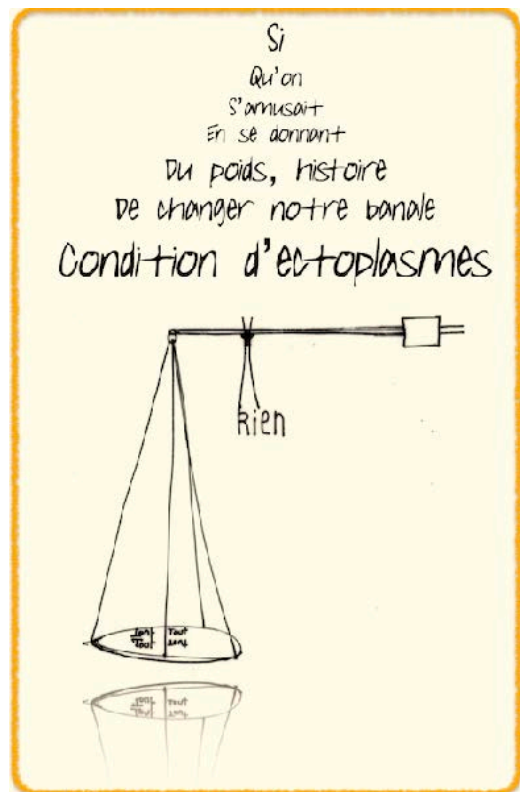 Si
Qu'on
S'amusait
En se donnant
Du poids, histoire
De changer notre banale
Condition d'ectoplasmes
Rien
Tout
Tout